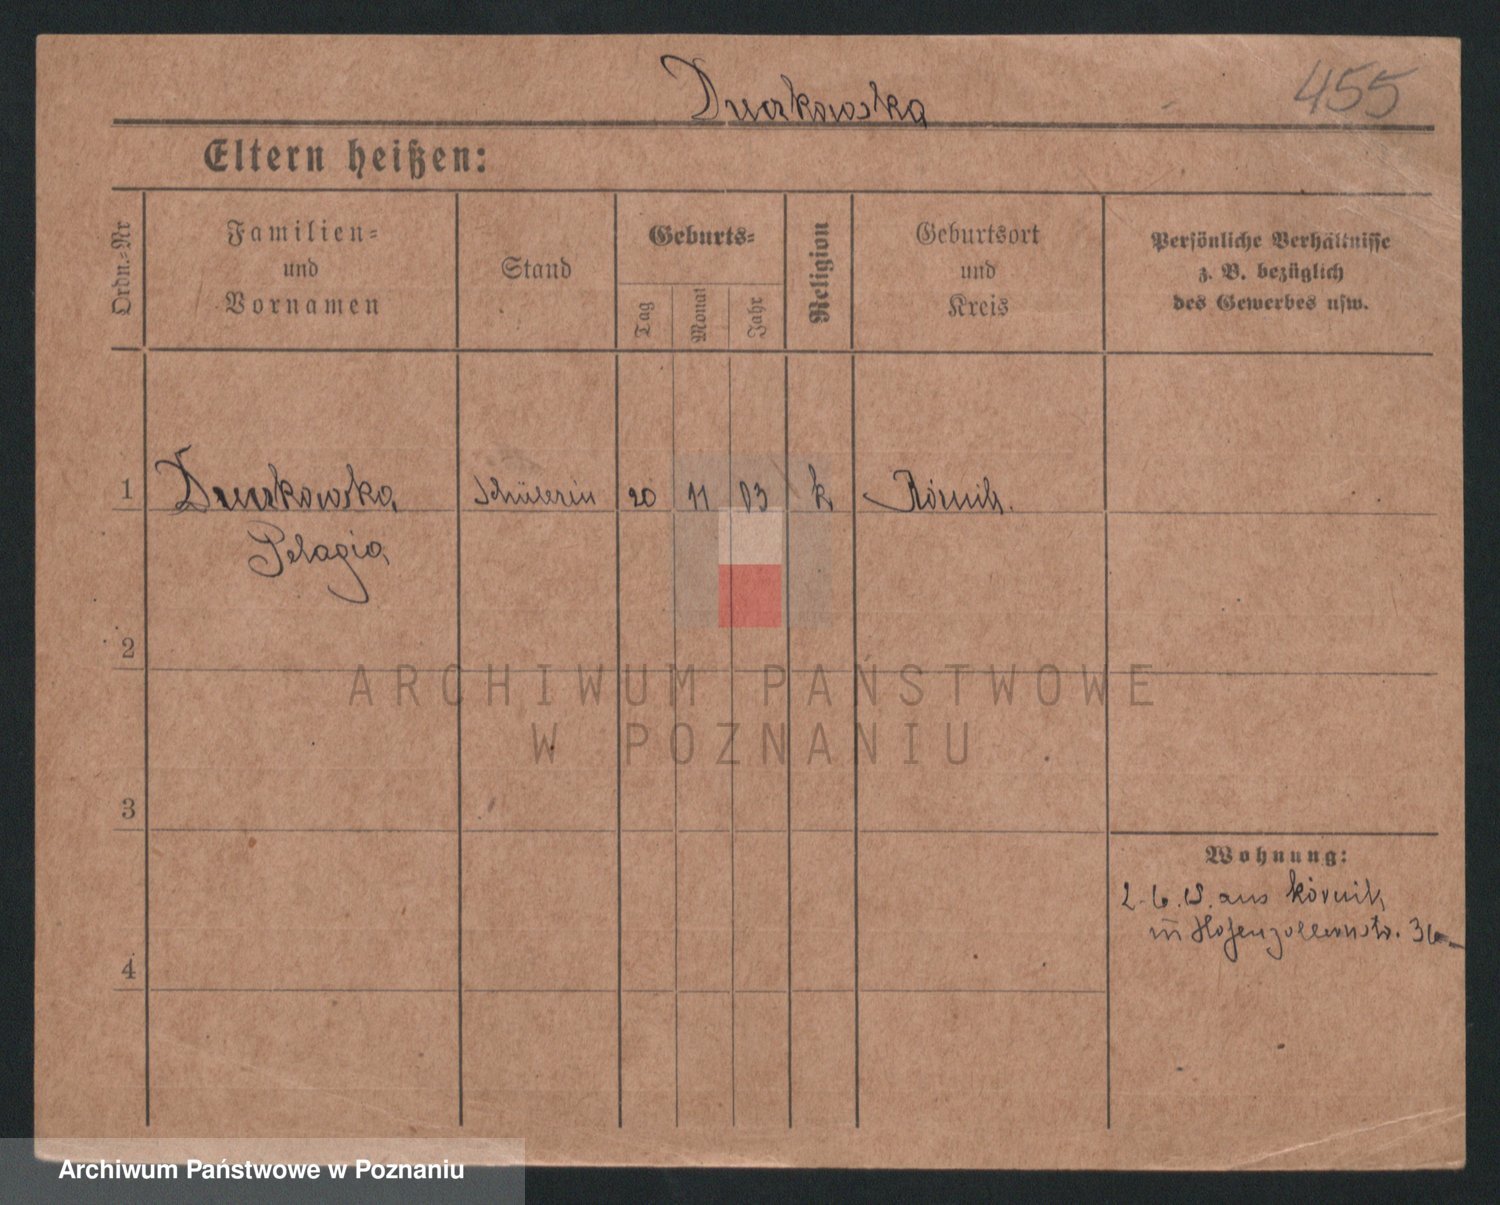 455
Eltern heißen:
Ordn.-Nr
Familien-
und
Vornamen
Stand
Geburts-
Tag
Monat
Jahr
Religion
Geburtsort
und
Kreis
Persönliche Verhältnisse
z. B. bezüglich
des Gewerbes usw.
1
Schülerin
20
11
03
k
Kórnik.
Pelagia
2
ARCHIWUM PAŃSTWOWE
W POZNANIU
3
Wohnung:
aus Kórnik
Hohenzollernstr.
4
Archiwum Państwowe w Poznaniu